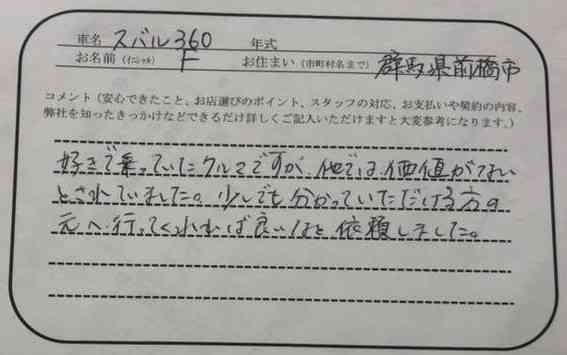 車名 スバル360 年式
お名前 (イニシャル) F お住まい (市町村名まで) 群馬県前橋市
コメント (安心できたこと、お店選びのポイント、スタッフの対応、お支払いや契約の内容、
弊社を知ったきっかけなどできるだけ詳しくご記入いただけますと大変参考になります。)
好きで乗っていたクルマですが、他では価値がない
とされていました。少しでも分かっていただける方の
元へ行ってくれれば良いなと依頼しました。